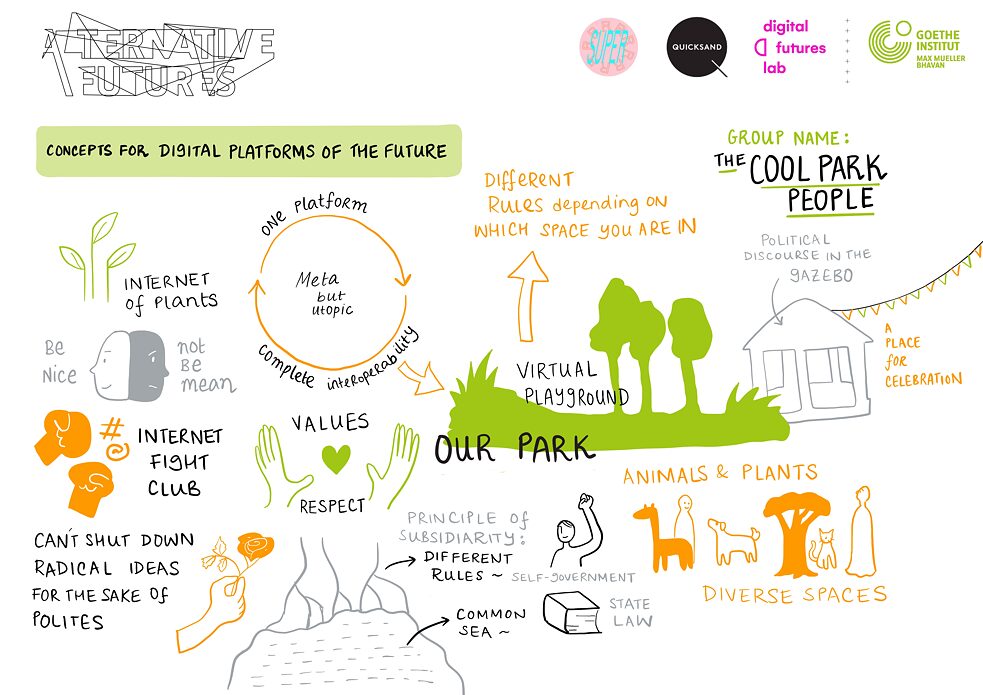 ALTERNATIVE
FUTURES
SUPER
QUICKSAND
digital
futures
lab
GOETHE
INSTITUT
MAX MUELLER
BHAVAN
CONCEPTS FOR DIGITAL PLATFORMS OF THE FUTURE
GROUP NAME:
THE COOL PARK
PEOPLE
INTERNET
of PLANTS
ONE PLATFORM
Meta
but
utopic
COMPLETE INTEROPERABILITY
DIFFERENT
RULES depending ON
WHICH SPACE YOU ARE IN
POLITICAL
DISCOURSE IN THE
GAZEBO
A
PLACE
for
CELEBRATION
BE
NICE
not
BE
mean
VIRTUAL
PLAYGROUND
OUR PARK
#
@
INTERNET
FIGHT
CLUB
VALUES
RESPECT
CAN'T SHUT DOWN
RADICAL IDEAS
FOR THE SAKE OF
POLITES
PRINCIPLE OF
SUBSIDIARITY:
DIFFERENT
RULES ~ SELF-GOVERNMENT
COMMON
SEA ~
STATE
LAW
ANIMALS & PLANTS
DIVERSE SPACES